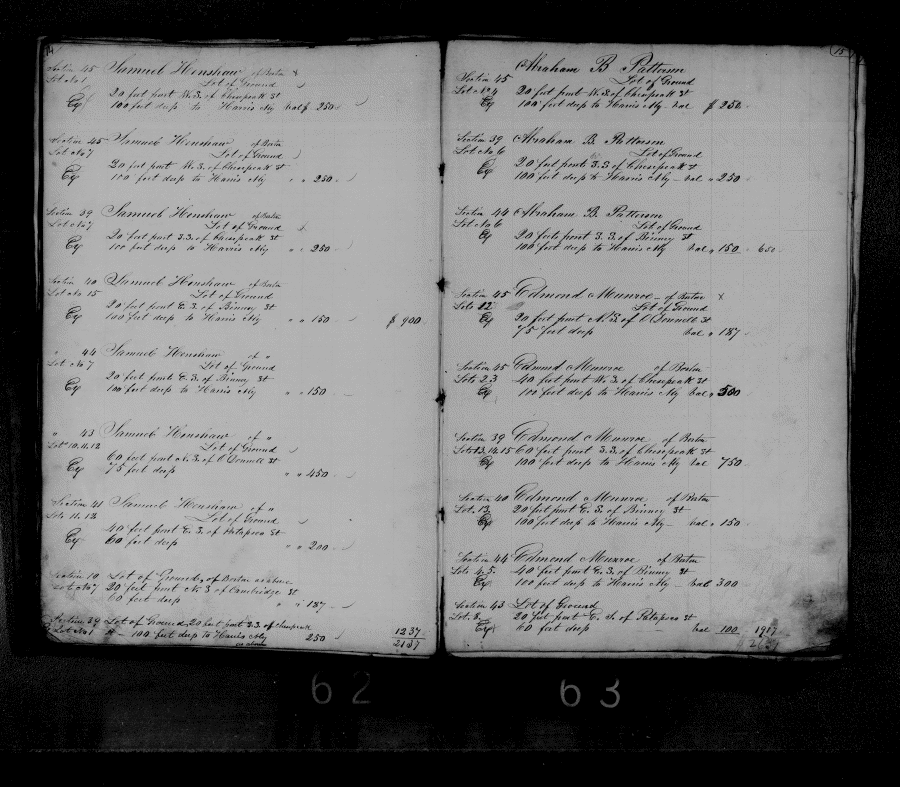 14
Section 45 Samuel Henshaw of Boston x
Lot No 1 Lot of Ground
20 feet front W. S. of Chesapeak St
Eq 100 feet deep to Harris Aly bal $ 250
Section 45 Samuel Henshaw of Boston
Lot No 7 Lot of Ground
20 feet front W. S. of Chesapeak St
Eq 100 feet deep to Harris Aly " " 250
Section 39 Samuel Henshaw of Boston
Lot No 7 Lot of Ground
20 feet front S. S. of Chesapeak St
Eq 100 feet deep to Harris Aly " " 250
Section 40 Samuel Henshaw of Boston
Lot No 15 Lot of Ground
20 feet front E. S. of Binney St
Eq 100 feet deep to Harris Aly " " 150 $ 900
" 44 Samuel Henshaw of "
Lot No 7 Lot of Ground
20 feet front E. S. of Binney St
Eq 100 feet deep to Harris Aly " " 150
" 43 Samuel Henshaw of "
Lots 10.11.12 Lot of Ground
60 feet front N. S. of O Donnell St
Eq 75 feet deep " " 450
Section 41 Samuel Henshaw of "
Lots 11.12 Lot of Ground
40 feet front E. S. of Patapsco St
Eq 60 feet deep " " 200
Section 10 Lot of Ground, of Boston as above
Lot No 7 20 feet front N. S of Cambridge St
60 feet deep " " 187
Section 39 Lot of Ground 20 feet front S.S. of Chesapeak
Lot No 1 100 feet deep to Harris Aly 250 1237
as above 2137
15
Abraham B Patterson
Section 45 Lot of Ground
Lot No 4 20 feet front W. S. of Chesapeak St
Eq 100 feet deep to Harris Aly - bal $ 250
Section 39 Abraham B. Patterson
Lot No 6 Lot of Ground
Eq 20 feet front S. S. of Chesapeak St
100 feet deep to Harris Aly - bal " 250
Section 44 Abraham B. Patterson
Lot No 6 Lot of Ground
Eq 20 feet front S. S. of Binney St
100 feet deep to Harris Aly bal " 150 650
Section 45 Edmond Munroe - of Boston x
Lots 22 Lot of Ground
Eq 20 feet front N. S. of O Donnell St
75 feet deep bal " 187
Section 45 Edmund Munroe of Boston
Lots 2.3 40 feet front W. S. of Chesapeak St
Eq 100 feet deep to Harris Aly bal " 500
Section 39 Edmond Munroe of Boston
Lots 13.14.15 60 feet front S. S. of Chesapeak St
Eq 100 feet deep to Harris Aly bal 750
Section 40 Edmond Munroe of Boston
Lot. 13 20 feet front E. S. of Binney St
Eq 100 feet deep to Harris Aly - bal " 150
Section 44 Edmond Munroe of Boston
Lots 4.5 40 feet front E. S. of Binney St
Eq 100 feet deep to Harris Aly - bal 300
Section 43 Lot of Ground
Lot. 8 20 feet front E. S. of Patapsco St
Eq 60 feet deep - bal 100 1987
62
63